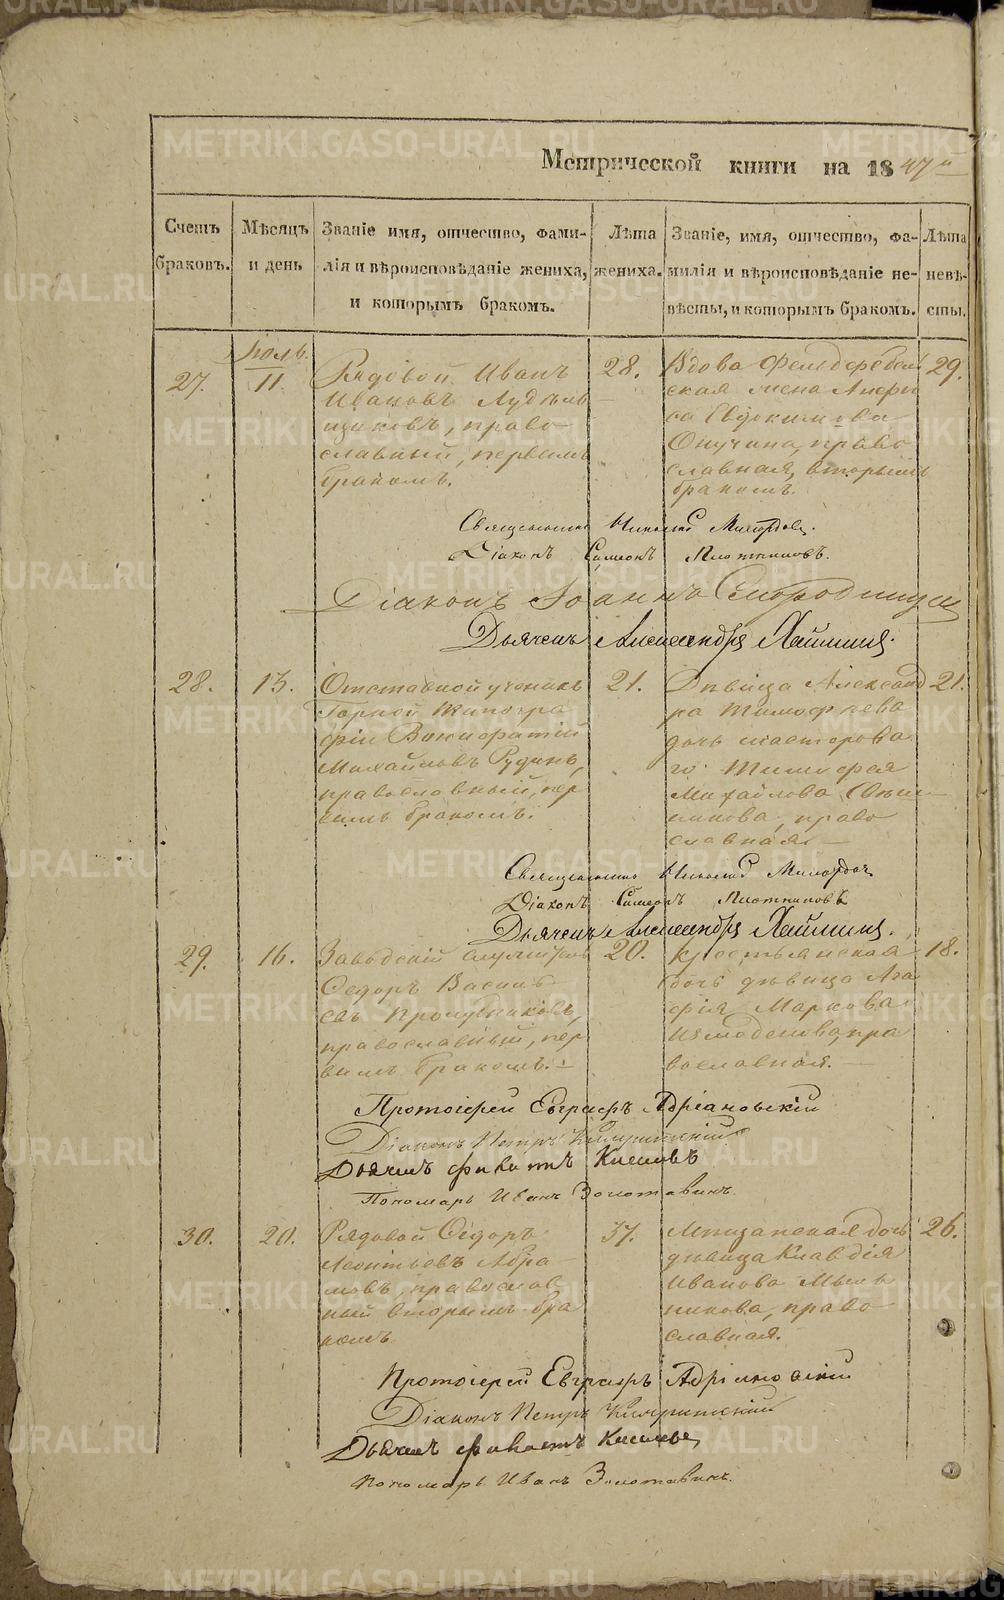 Метрической книги на 1847 й
Счетъ браковъ.
Мѣсяцъ и день
Званіе имя, отчество, фами-
лія и вѣроисповѣданіе жениха,
и которымъ бракомъ.
Лѣта жениха.
Званіе, имя, отчество, фа-
милія и вѣроисповѣданіе не-
вѣсты, и которымъ бракомъ.
Лѣта невѣ-
сты.
27.
11.
Рядовой Иванъ
Ивановъ
щиковъ, право
славный, первымъ
бракомъ.
28.
Вдова Фельдфебель
ская жена
са Евдокимова
Онучина, право
славная, вторымъ
бракомъ.
29.
Священникъ Николай
Діаконъ Симеонъ Плотниковъ.
Діаконъ Іоаннъ Смородинцев
Дьячекъ Александръ
28.
13.
Отставной ученикъ
Горной Типогра
фіи Вонифатій
Михайловъ Рудинъ,
православный, пер
вымъ бракомъ.
21.
Дѣвица Александ
ра Тимофеева
дочь мастерова
го Тимофея
Михайлова
никова, право
славная.
21.
Священникъ Николай
Діаконъ Симеонъ Плотниковъ
Дьячекъ Александръ
29.
16.
Заводскій служитель
Ѳедоръ Василь
евъ
православный, пер
вымъ бракомъ.
20.
Крестьянская
дочь дѣвица Ага
фія Маркова
Измоденова, пра
вославная.
18.
Протоіерей Евграфъ Адріановскій
Діаконъ Петръ
Дьячекъ
Пономарь Иванъ Золотавинъ.
30.
20.
Рядовой Ѳедоръ
Леонтьевъ Абра
мовъ, православ
ный вторымъ бра
комъ.
37.
Мѣщанская дочь
дѣвица Клавдія
Иванова Мыль
никова, право
славная.
26.
Протоіерей Евграфъ Адріановскій
Діаконъ Петръ
Дьячекъ
Пономарь Иванъ Золотавинъ.
METRIKI.GASO-URAL.RU